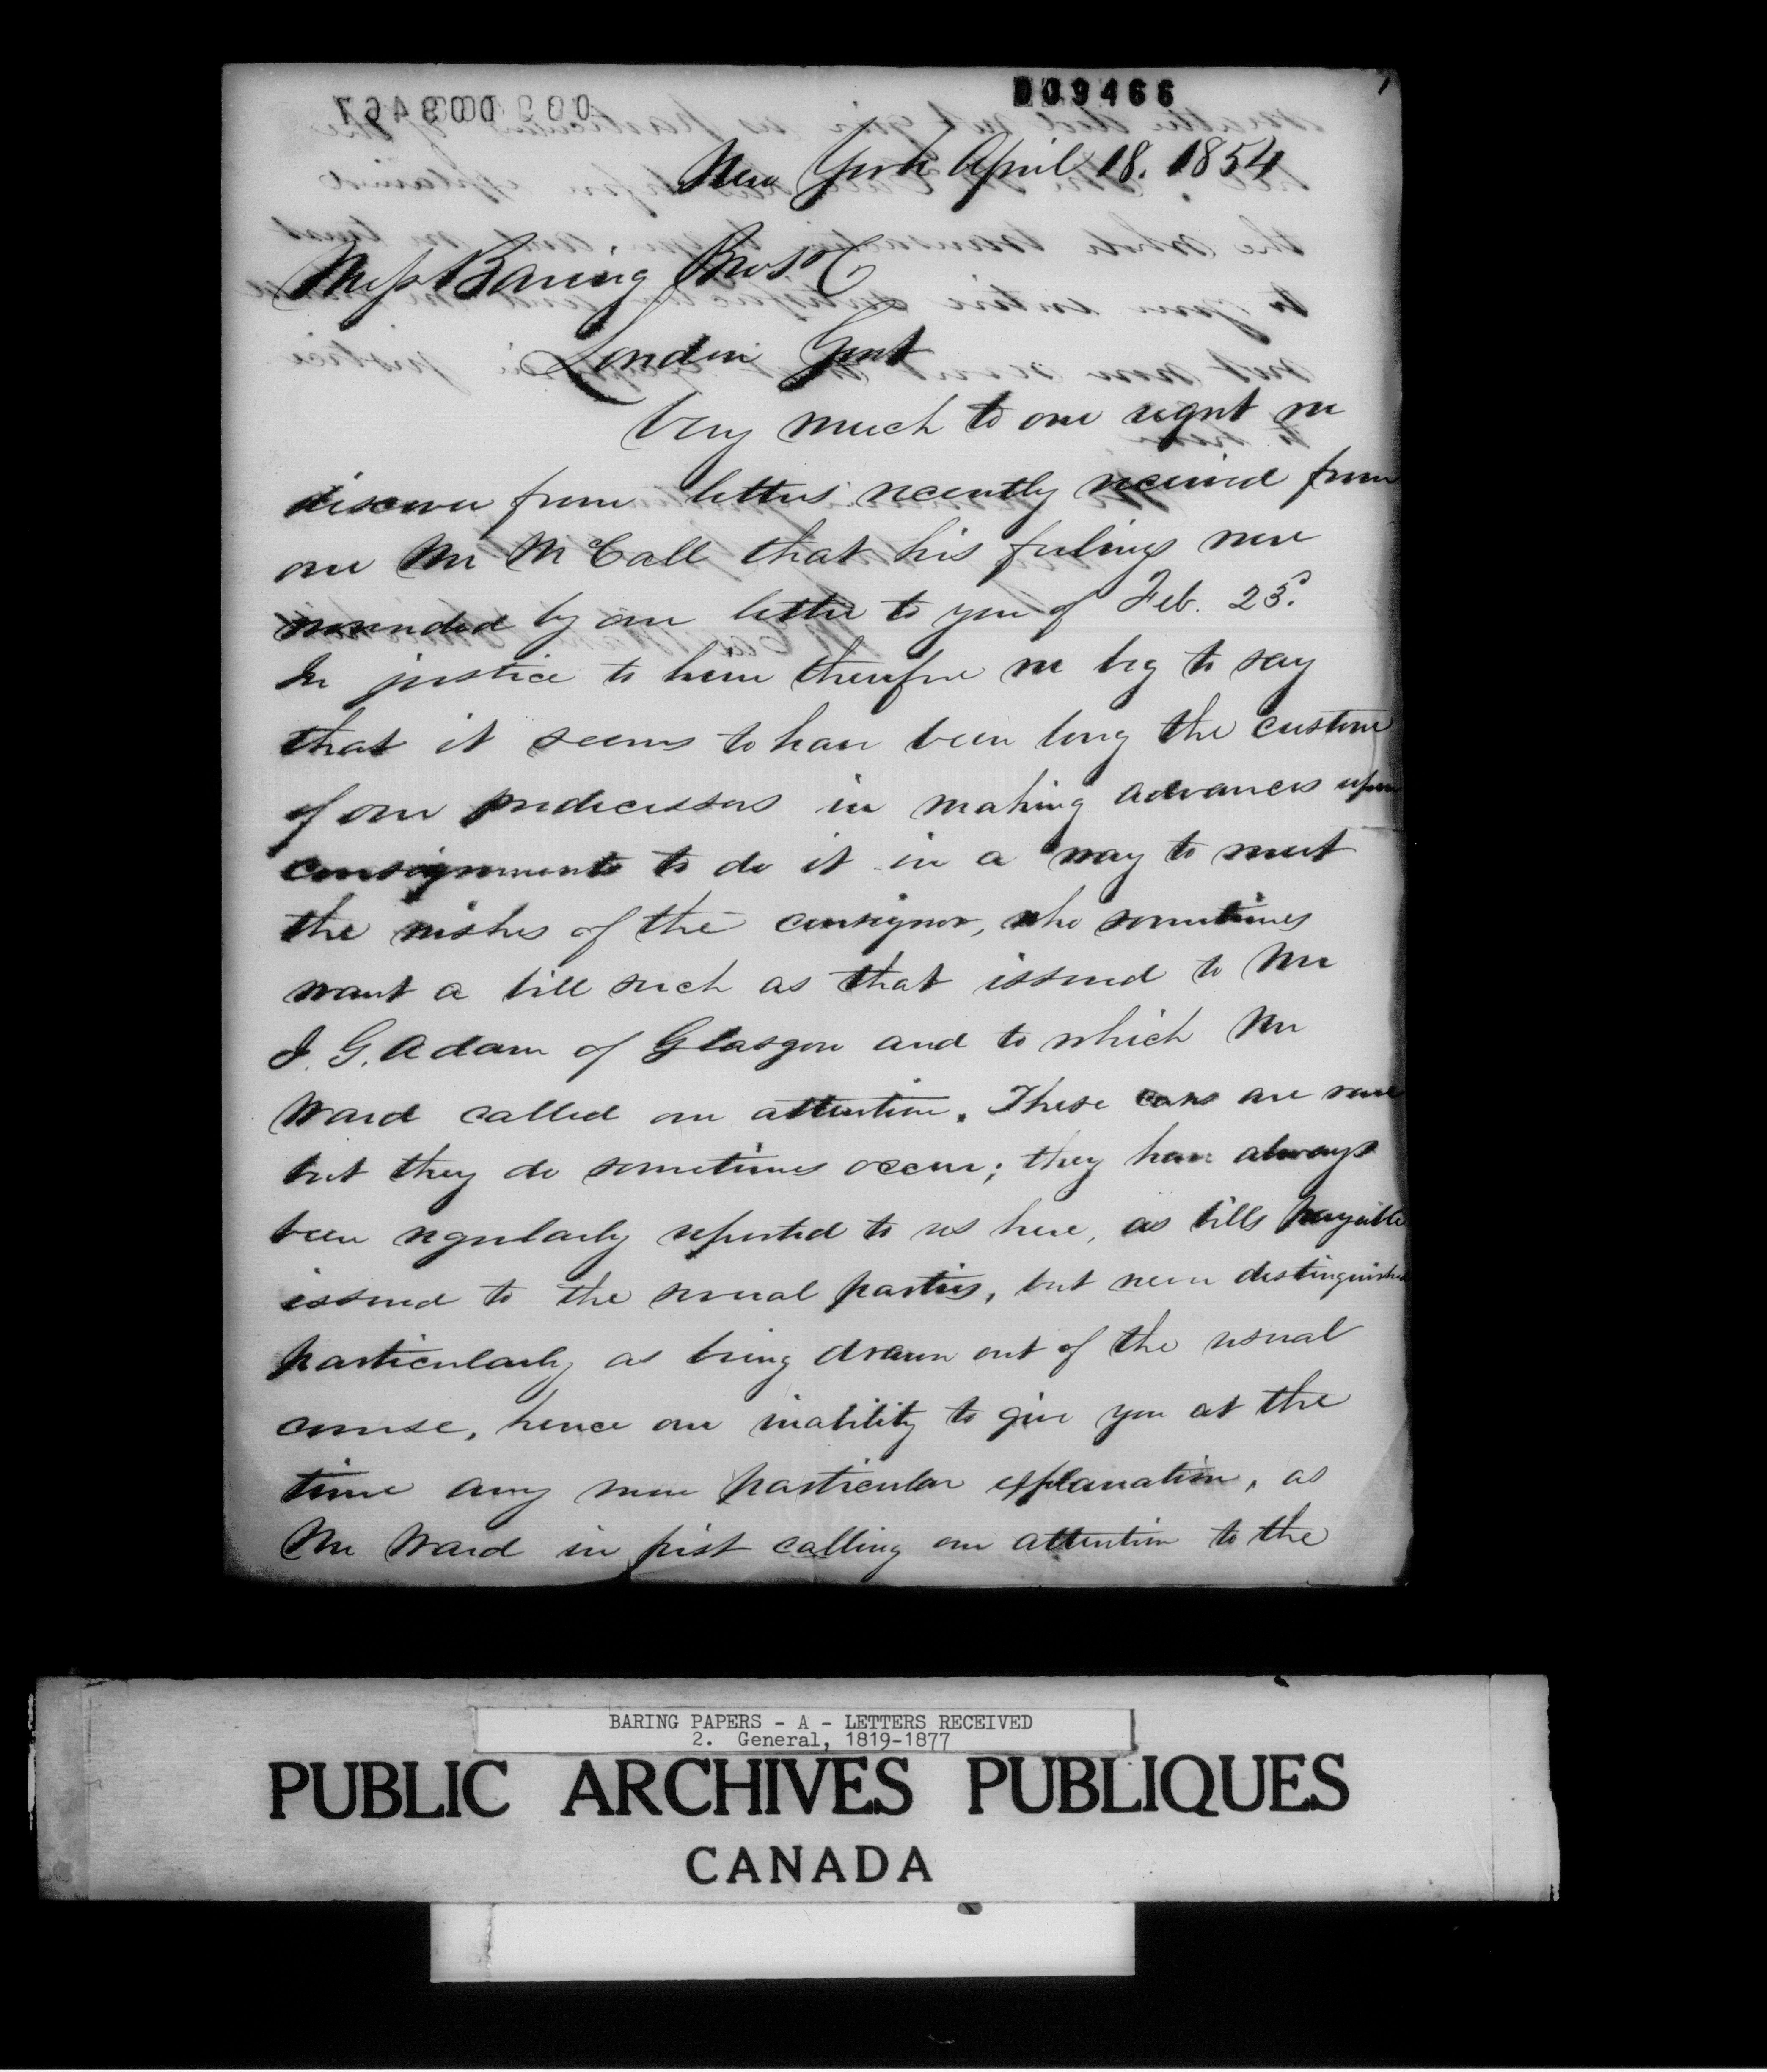 009466
New York April 18. 1854
Mess Baring Bros & Co
London Gent
Very much to our regret we
discover from letters recently received from
our Mr McCall that his feelings were
wounded by our letter to you of Feb. 23d.
In justice to him therefore we beg to say
that it seems to have been long the custom
of our predecessors in making advances upon
consignments to do it in a way to meet
the wishes of the consignor, who sometimes
want a bill such as that issued to Mr
J. G. Adam of Glasgow and to which Mr
Ward called our attention. These cases are rare
but they do sometimes occur; they have always
been regularly reported to us here, as bills payable
issued to the several parties, but never distinguished
particularly as being drawn out of the usual
course, hence our inability to give you at the
time any more particular explanation, as
Mr Ward in first calling our attention to the
BARING PAPERS - A - LETTERS RECEIVED
2. General, 1819-1877
PUBLIC ARCHIVES PUBLIQUES
CANADA